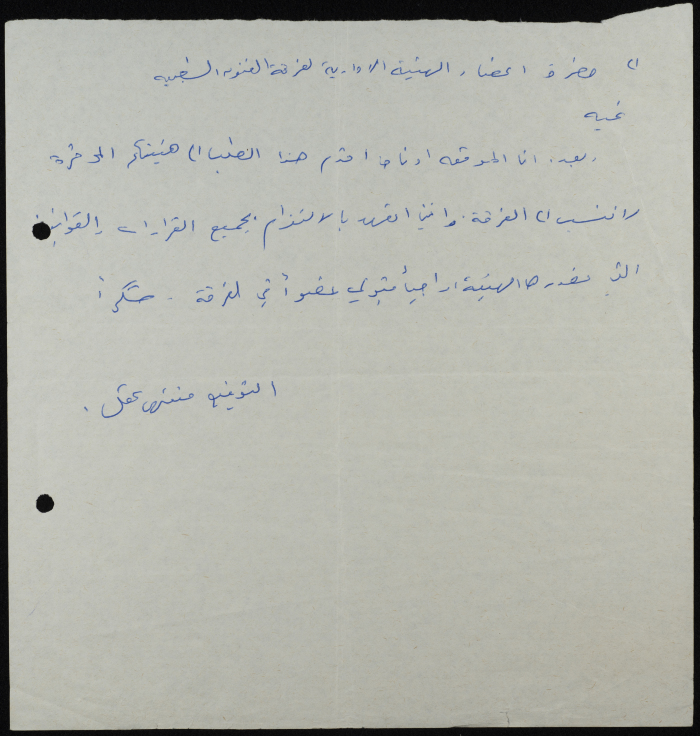 الى حضرة اعضاء الهيئة الادارية لفرقة الفنون الشعبيه
تحيه
وبعد، انا الموقعه ادناه اقدم هذا الطلب الى هيئتكم الموقرة
لانتسب الى الفرقة. وانني اتعهد بالالتزام بجميع القرارات والقوانين
التي تصدرها الهيئة راجياً قبولي عضواً في الفرقة. شكراً
التوقيع منتهى عقل.